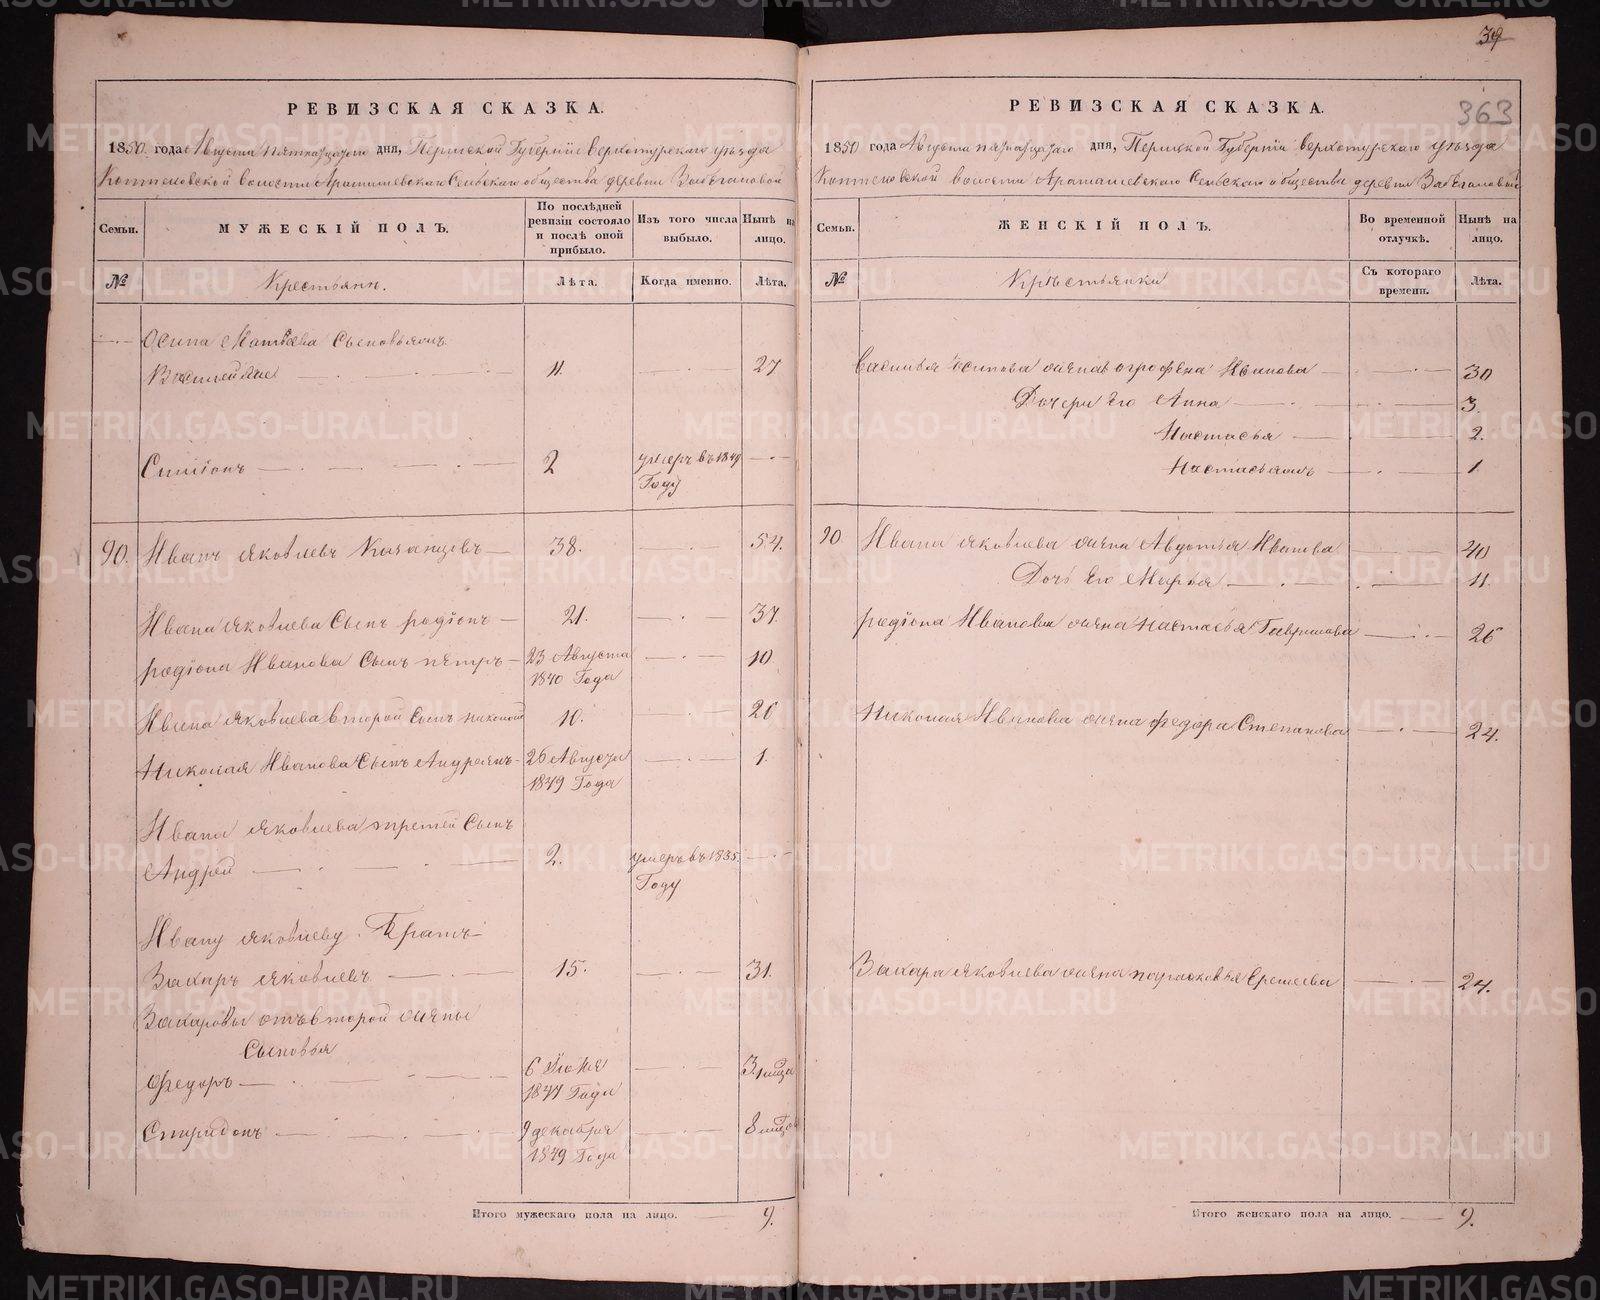 39
363
РЕВИЗСКАЯ СКАЗКА.
1850 года Августа пятнадцатаго дня, Пермской Губернии Верхотурскаго уѣзда
Коптеловской волости Арамашевскаго Сельскаго общества деревни
Семьи.
МУЖЕСКІЙ ПОЛЪ.
По послѣдней ревизіи состояло и послѣ оной прибыло.
Изъ того числа выбыло.
Нынѣ на лицо.
№
Крестьянъ.
Лѣта.
Когда именно.
Лѣта.
Осипа Матвѣева Сыновьямъ
11. 27
Симіонъ 2 умеръ въ 1849
Году
90. Иванъ Яковлевъ Казанцовъ 38. 54.
Ивана Яковлева Сынъ родіонъ 21. 37
родіона Иванова Сынъ петръ 23 Августа 10
1840 Года
Ивана Яковлева второй Сынъ николай 10. 26
Николая Иванова Сынъ Андреянъ 26 Августа 1.
1849 Года
Ивана Яковлева третей Сынъ
Андрей 2. умеръ въ 1835.
Году
Ивану Яковлеву Братъ
Захаръ Яковлевъ 15. 31.
Захаровы отъ второй жены
Сыновья
Федоръ 6 Июня 3
1847 Года
Спиридонъ 9 декабря 8
1849 Года
Итого мужескаго пола на лицо. 9.
РЕВИЗСКАЯ СКАЗКА.
1850 года Августа дня, Пермской Губерніи Верхотурскаго уѣзда
Коптеловской волости Арамашевскаго Сельскаго общества деревни
Семьи.
ЖЕНСКІЙ ПОЛЪ.
Во временной отлучкѣ.
Нынѣ на лицо.
№
Крестьянки
Съ котораго времени.
Лѣта.
Василья Осипова жена огрофена Иванова 30
Дочери Его Анна 3.
Настасья 2.
1
90. Ивана Яковлева жена Авдотья Иванова 40
Дочь Его Марья 11.
родіона Иванова жена настасья Гаврилова 26
Николая Иванова жена федора Степанова 24.
Захара Яковлева жена парасковья Еремеева 24.
Итого женскаго пола на лицо. 9.
METRIKI.GASO-URAL.RU